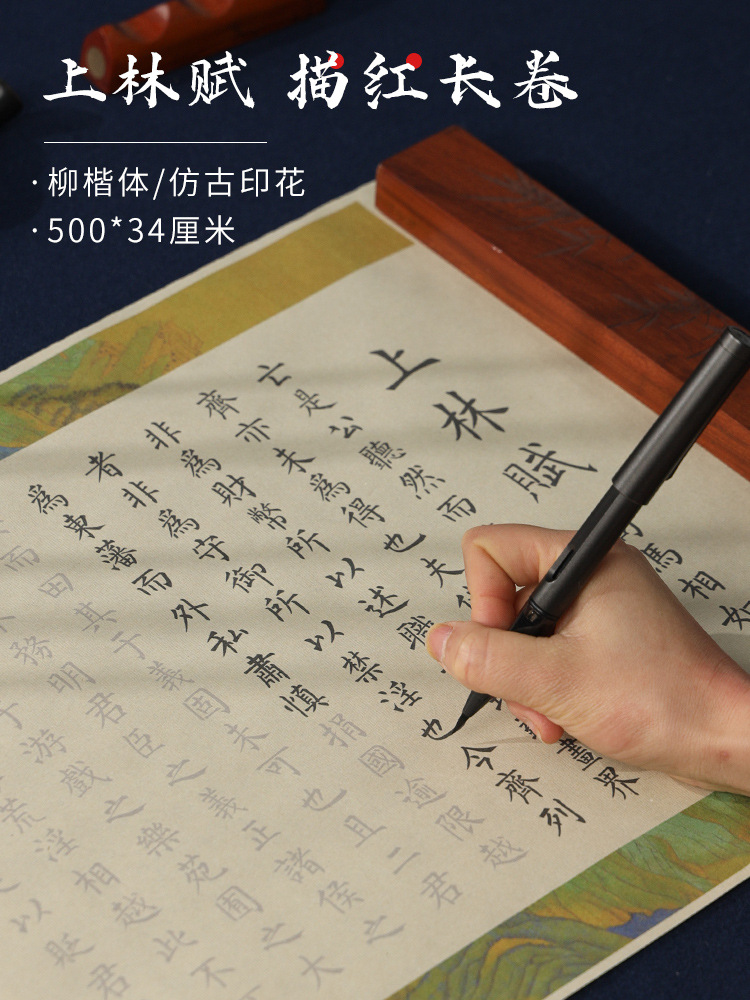 上林赋 描红长卷
·柳楷体/仿古印花
·500*34厘米
上林賦馬相如
亡是公聽然而
齊亦未為得也夫
非為財幣所以述職畫界
者非為守御所以禁淫也今齊列
為東藩而外私肅慎捐國逾限越
而田其于義固未可也且二君
務明君臣之義正諸侯之
于游戲之樂苑囿之大
荒淫相越此不
以貶君